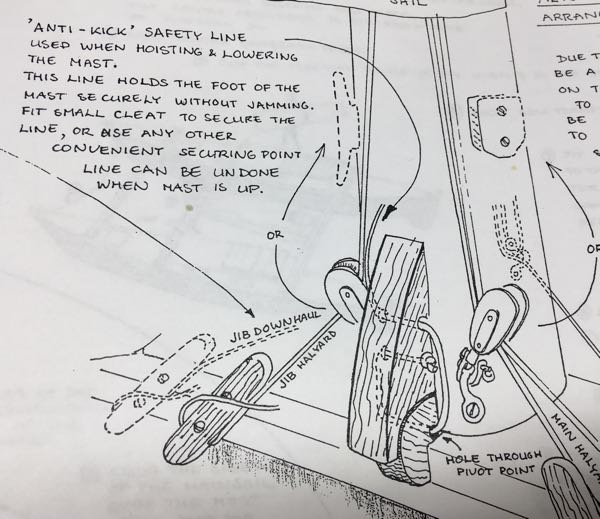 SAIL
'ANTI-KICK' SAFETY LINE
USED WHEN HOISTING & LOWERING
THE MAST.
THIS LINE HOLDS THE FOOT OF THE
MAST SECURELY WITHOUT JAMMING.
FIT SMALL CLEAT TO SECURE THE
LINE, OR USE ANY OTHER
CONVENIENT SECURING POINT
LINE CAN BE UNDONE
WHEN MAST IS UP.
ARRAN
DUE T
BE A
ON T
TO
BE
TO
OR
OR
JIB DOWNHAUL
JIB HALYARD
MAIN HALYA
HOLE THROUGH
PIVOT POINT